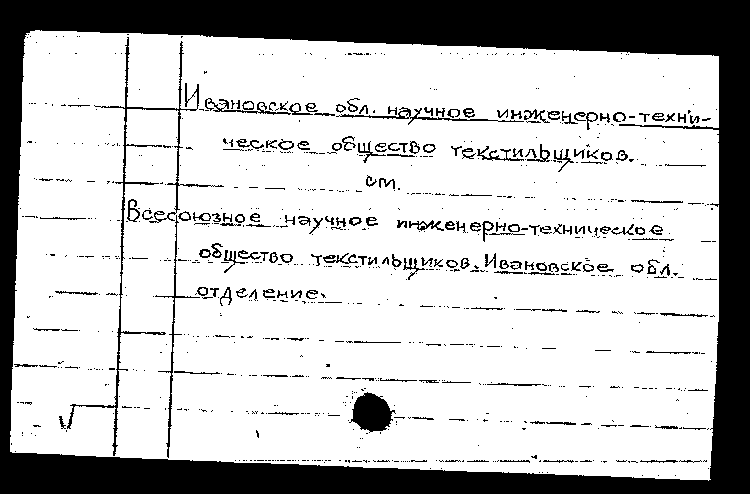 Ивановское обл. научное инженерно-техни-
ческое общество текстильщиков.
см.
Всесоюзное научное инженерно-техническое
общество текстильщиков. Ивановское обл.
отделение.